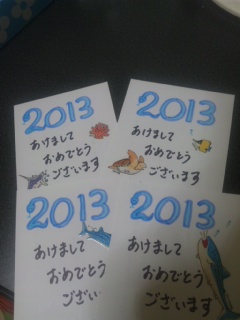 2013
あけまして
おめでとう
ございます
2013
あけまして
おめでとう
ございます
2013
あけまして
おめでとう
ござい
2013
あけまして
おめでとう
ございます